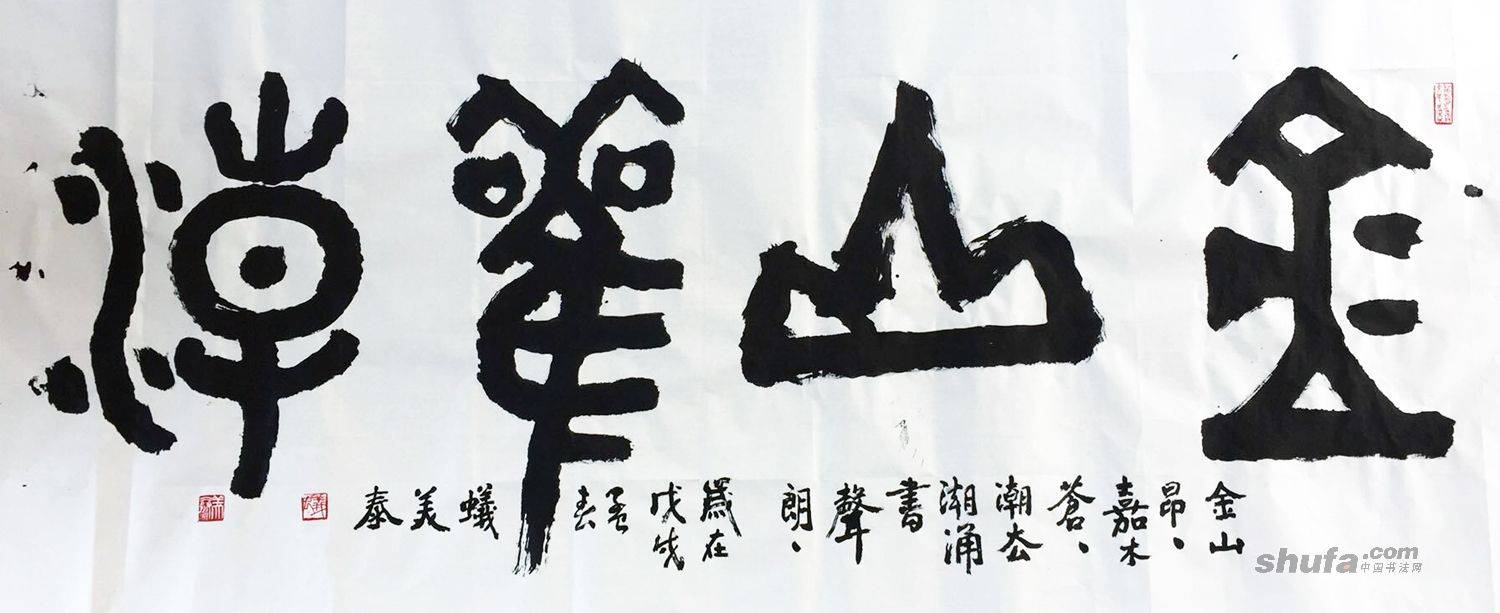 金山潮
金山
昂、
嘉木
蒼、
潮去
潮涌
書
聲
朗、
歲在
戊戌
孟
春
蟻
美
泰
shufa.com
中国书法网